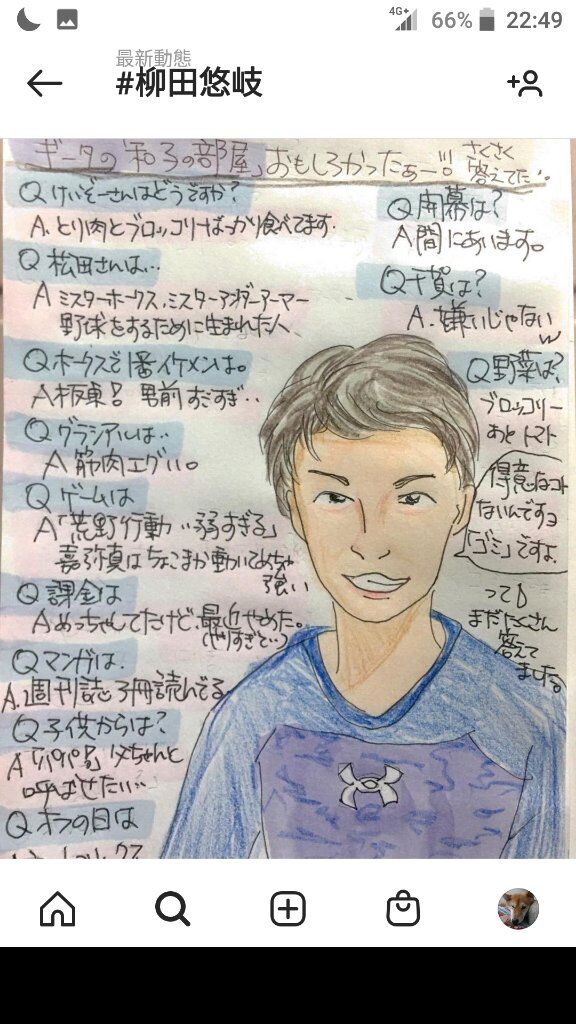 4G+
66%
22:49
最新動態
#柳田悠岐
ギータの「和子の部屋」おもしろかったぁー!!!
さくさく
答えてた
Q けいぞーさんはどうですか?
A. とり肉とブロッコリーばっかり食べてます.
Q 松田さんは…
A ミスターホークス、ミスターアンダーアーマー
野球をするために生まれた人
Qホークスで1番イケメンは。
A板東! 男前すぎ‥
Q グラシアルは‥
A 筋肉エグい。
Q ゲームは
A「荒野行動‥弱すぎる」
嘉弥真はちょこまか動いてめちゃ
強い
Q 課金は
Aめっちゃしてたけど、最近やめた。
(やりすぎて‥)
Q マンガは.
A.週刊誌3冊読んでる
Q子供からは?
A「パパ」父ちゃんと
呼ばせたい…
Q オフの日は
Q 開幕は?
A 間にあいます。
Q千賀は?
A.嫌いじゃない
w
Q野菜は?
ブロッコリー
あとトマト
得意なコト
ないんですョ
「ゴミ」ですよ.
って♪
まだたくさん
答えて
ました。